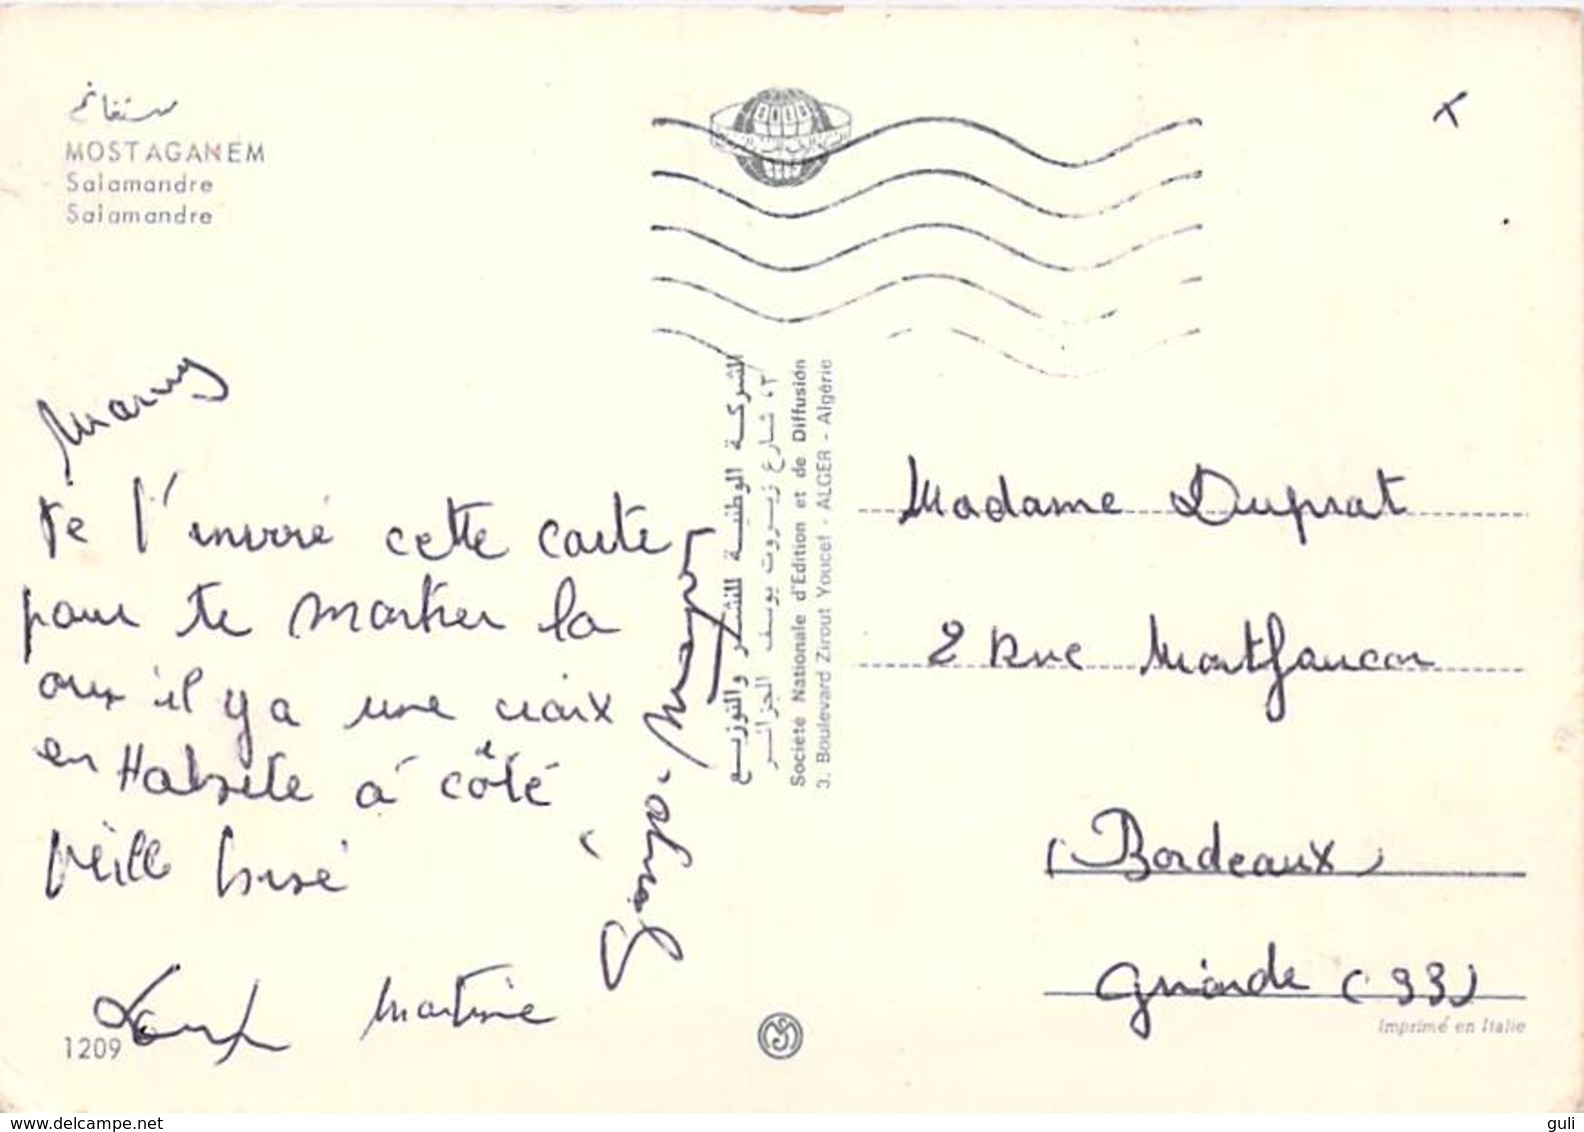 مستغانم
MOSTAGANEM
Salamandre
Salamandre
Mamy
Je t'envoie cette carte
pour te montrer la
où il y a une croix
en Habite à côté
veille bisé
Martine
1209
الشركة الوطنية للنشر والتوزيع
٣، شارع زيروت يوسف الجزائر
Société Nationale d'Edition et de Diffusion
3. Boulevard Zirout Youcef - ALGER - Algérie
Madame Duprat
2 Rue Montfaucon
(Bordeaux)
Gironde (33)
Imprimé en Italie
www.delcampe.net
guli